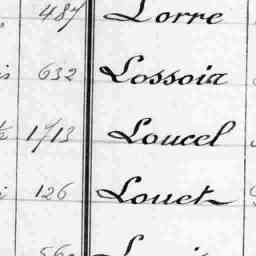 487 Lorre
632 Lossoir
1713 Loucel
126 Louet